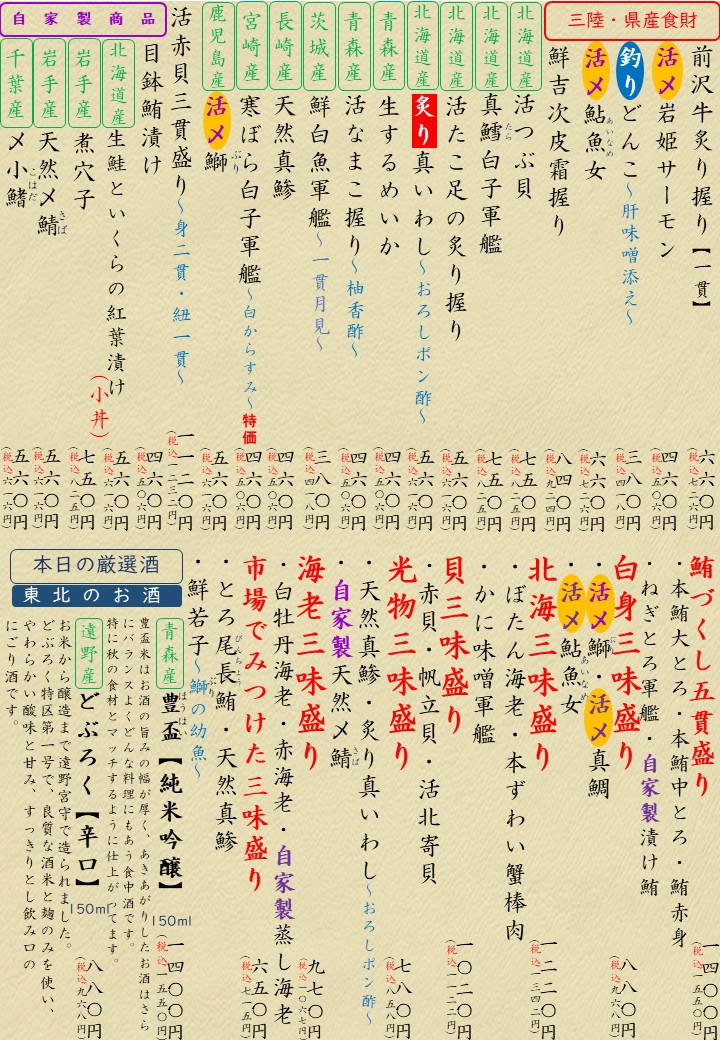 三陸・県産食財
前沢牛炙り握り【一貫】
六六〇円
(税込七二六円)
活〆岩姫サーモン
四六〇円
(税込五〇六円)
釣りどんこ~肝味噌添え~
三八〇円
(税込四一八円)
活〆鮎魚女
あいなめ
六六〇円
(税込七二六円)
鮮吉次皮霜握り
八四〇円
(税込九二四円)
北海道産
活つぶ貝
七五〇円
(税込八二五円)
北海道産
真鱈白子軍艦
たら
七五〇円
(税込八二五円)
北海道産
活たこ足の炙り握り
五六〇円
(税込六一六円)
北海道産
炙り真いわし~おろしポン酢~
五六〇円
(税込六一六円)
青森産
生するめいか
四六〇円
(税込五〇六円)
青森産
活なまこ握り~柚香酢~
四六〇円
(税込五〇六円)
茨城産
鮮白魚軍艦~一貫月見~
三八〇円
(税込四一八円)
長崎産
天然真鯵
四六〇円
(税込五〇六円)
宮崎産
寒ぼら白子軍艦~白からすみ~特価
四六〇円
(税込五〇六円)
鹿児島産
活〆鰤
ぶり
五六〇円
(税込六一六円)
活赤貝三貫盛り~身二貫・紐一貫~
一一二〇円
(税込一二三二円)
自家製商品
目鉢鮪漬け
四六〇円
(税込五〇六円)
北海道産
生鮭といくらの紅葉漬け
(小丼)
五六〇円
(税込六一六円)
岩手産
煮穴子
七五〇円
(税込八二五円)
岩手産
天然〆鯖
さば
五六〇円
(税込六一六円)
千葉産
〆小鰭
こはだ
五六〇円
(税込六一六円)
鮪づくし五貫盛り
・本鮪大とろ・本鮪中とろ・鮪赤身
・ねぎとろ軍艦・自家製漬け鮪
一四〇〇円
(税込一五四〇円)
白身三味盛り
・活〆鰤・活〆真鯛
ぶり
・活〆鮎魚女
あいなめ
八八〇円
(税込九六八円)
北海三味盛り
・ぼたん海老・本ずわい蟹棒肉
・かに味噌軍艦
一二二〇円
(税込一三四二円)
貝三味盛り
・赤貝・帆立貝・活北寄貝
一〇二〇円
(税込一一二二円)
光物三味盛り
・天然真鯵・炙り真いわし~おろしポン酢~
・自家製天然〆鯖
さば
七八〇円
(税込八五八円)
海老三味盛り
・白牡丹海老・赤海老・自家製蒸し海老
九七〇円
(税込一〇六七円)
市場でみつけた三味盛り
・とろ尾長鮪・天然真鯵
びんちょう
・鮮若子~鰤の幼魚~
ぶり
六五〇円
(税込七一五円)
本日の厳選酒
東北のお酒
青森産
豊盃【純米吟醸】
ほうはい
150ml
一四〇〇円
(税込一五五〇円)
豊盃米はお酒の旨みの幅が厚く、あきあがりしたお酒はさら
にバランスよくどんな料理にもあう食中酒です。
特に秋の食材とマッチするように仕上がってます。
遠野産
どぶろく【辛口】
150ml
八八〇円
(税込九六八円)
お米から醸造まで遠野宮守で造られました。
どぶろく特区第一号で、良質な酒米と麹のみを使い、
やわらかい酸味と甘み、すっきりとし飲み口の
にごり酒です。